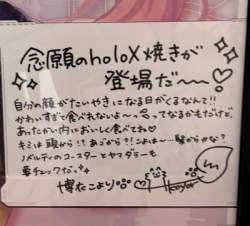 念願のholoX焼きが
登場だ〜〜!♡
自分の顔がたいやきになる日がくるなんて!!
かわいすぎて食べれないよ〜〜って なるかもだけど。
あったかい内においしく食べてね♡
キミは 頭から!! あごから!! こよは〜 髪からかな?
ノベルティのコースターとヤマダラーも
要チェックだ。
博衣こより